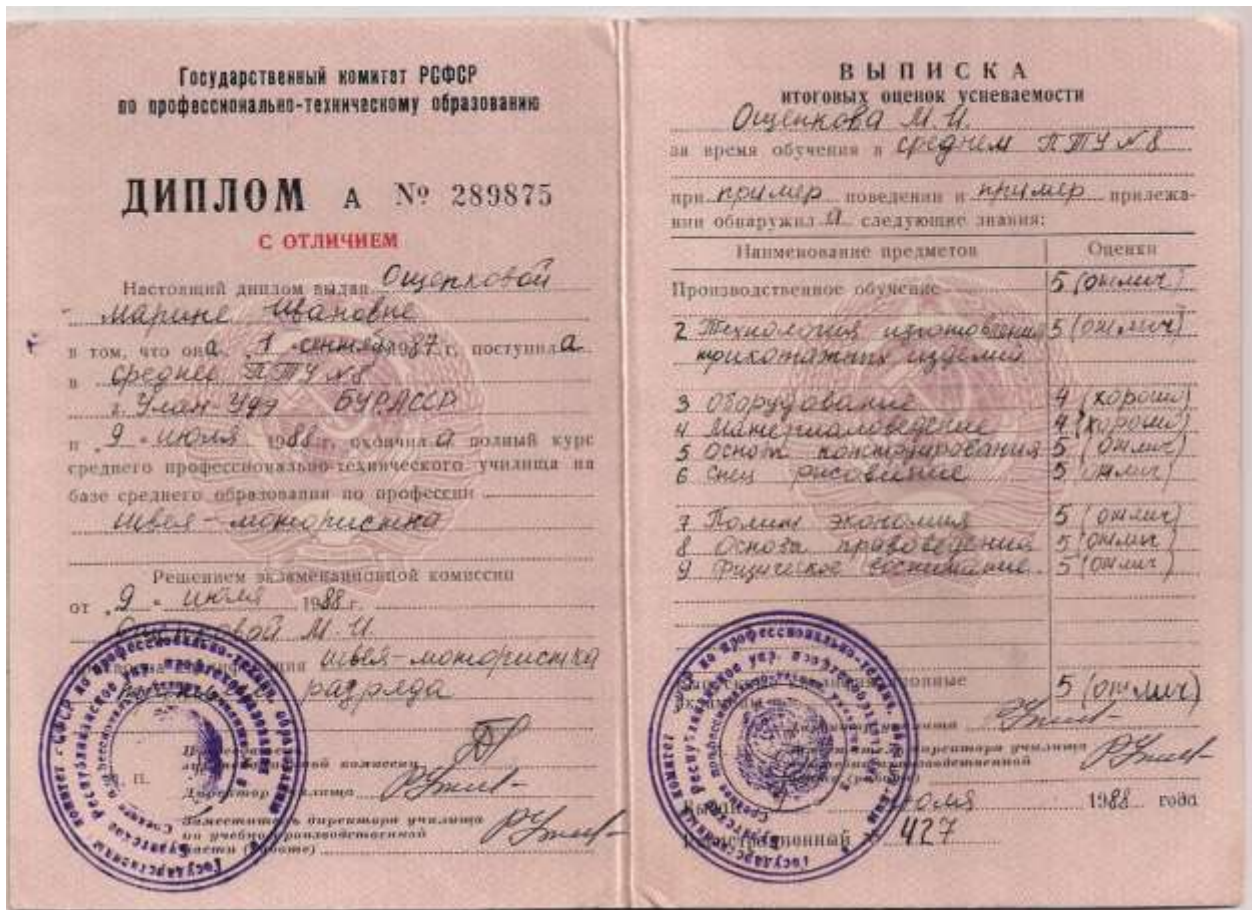 Государственный комитет РСФСР
по профессионально-техническому образованию
ДИПЛОМ А № 289875
С ОТЛИЧИЕМ
Настоящий диплом выдан Ощепковой
Марине Ивановне
в том, что она „1 сентября 1987 г. поступила
в среднее ПТУ №8
г. Улан-Удэ БУРАССР
и „9 " июля 1988 г. окончила полный курс
среднего профессионально-технического училища на
базе среднего образования по профессии
швея-мотористка
Решением экзаменационной комиссии
от „9 " июля 1988 г.
Ощепковой М. И.
швея-мотористка
разряда
комиссии
Директор училища
Заместитель директора училища
по учебно-производственной
части (работе)
ВЫПИСКА
итоговых оценок успеваемости
Ощепкова М. И.
за время обучения в среднем ПТУ №8
при пример поведении и пример прилежа-
нии обнаружила следующие знания:
Наименование предметов Оценки
Производственное обучение 5 (отлич)
2 Технология изготовления 5 (отлич)
трикотажных изделий
3 Оборудование 4 (хорошо)
4 Материаловедение 4 (хорошо)
5 Основы конструирования 5 (отлич)
6 Спец рисование 5 (отлич)
7 Полит экономия 5 (отлич)
8 Основы правоведения 5 (отлич)
9 Физическое воспитание 5 (отлич)
5 (отлич)
директора училища
1988 года
Регистрационный № 427